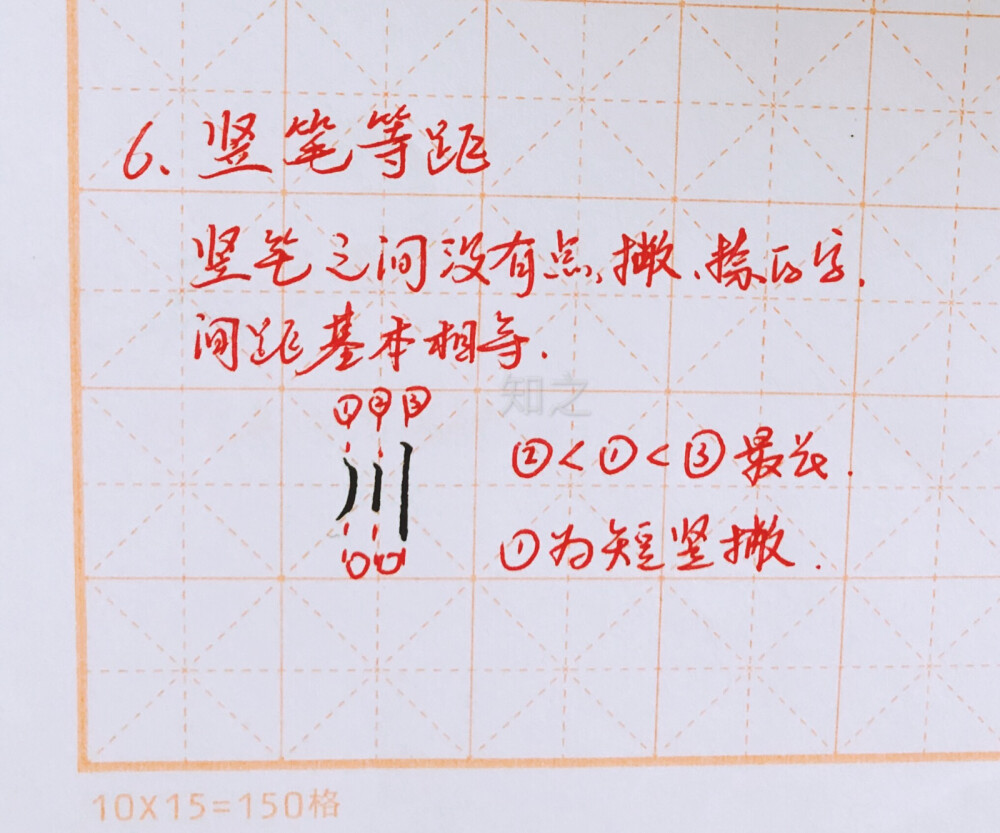 6、竖笔等距
竖笔之间没有点、撇、捺的字.
间距基本相等.
①②③
川
知之
②<①<③最长.
①为短竖撇.
10X15=150格